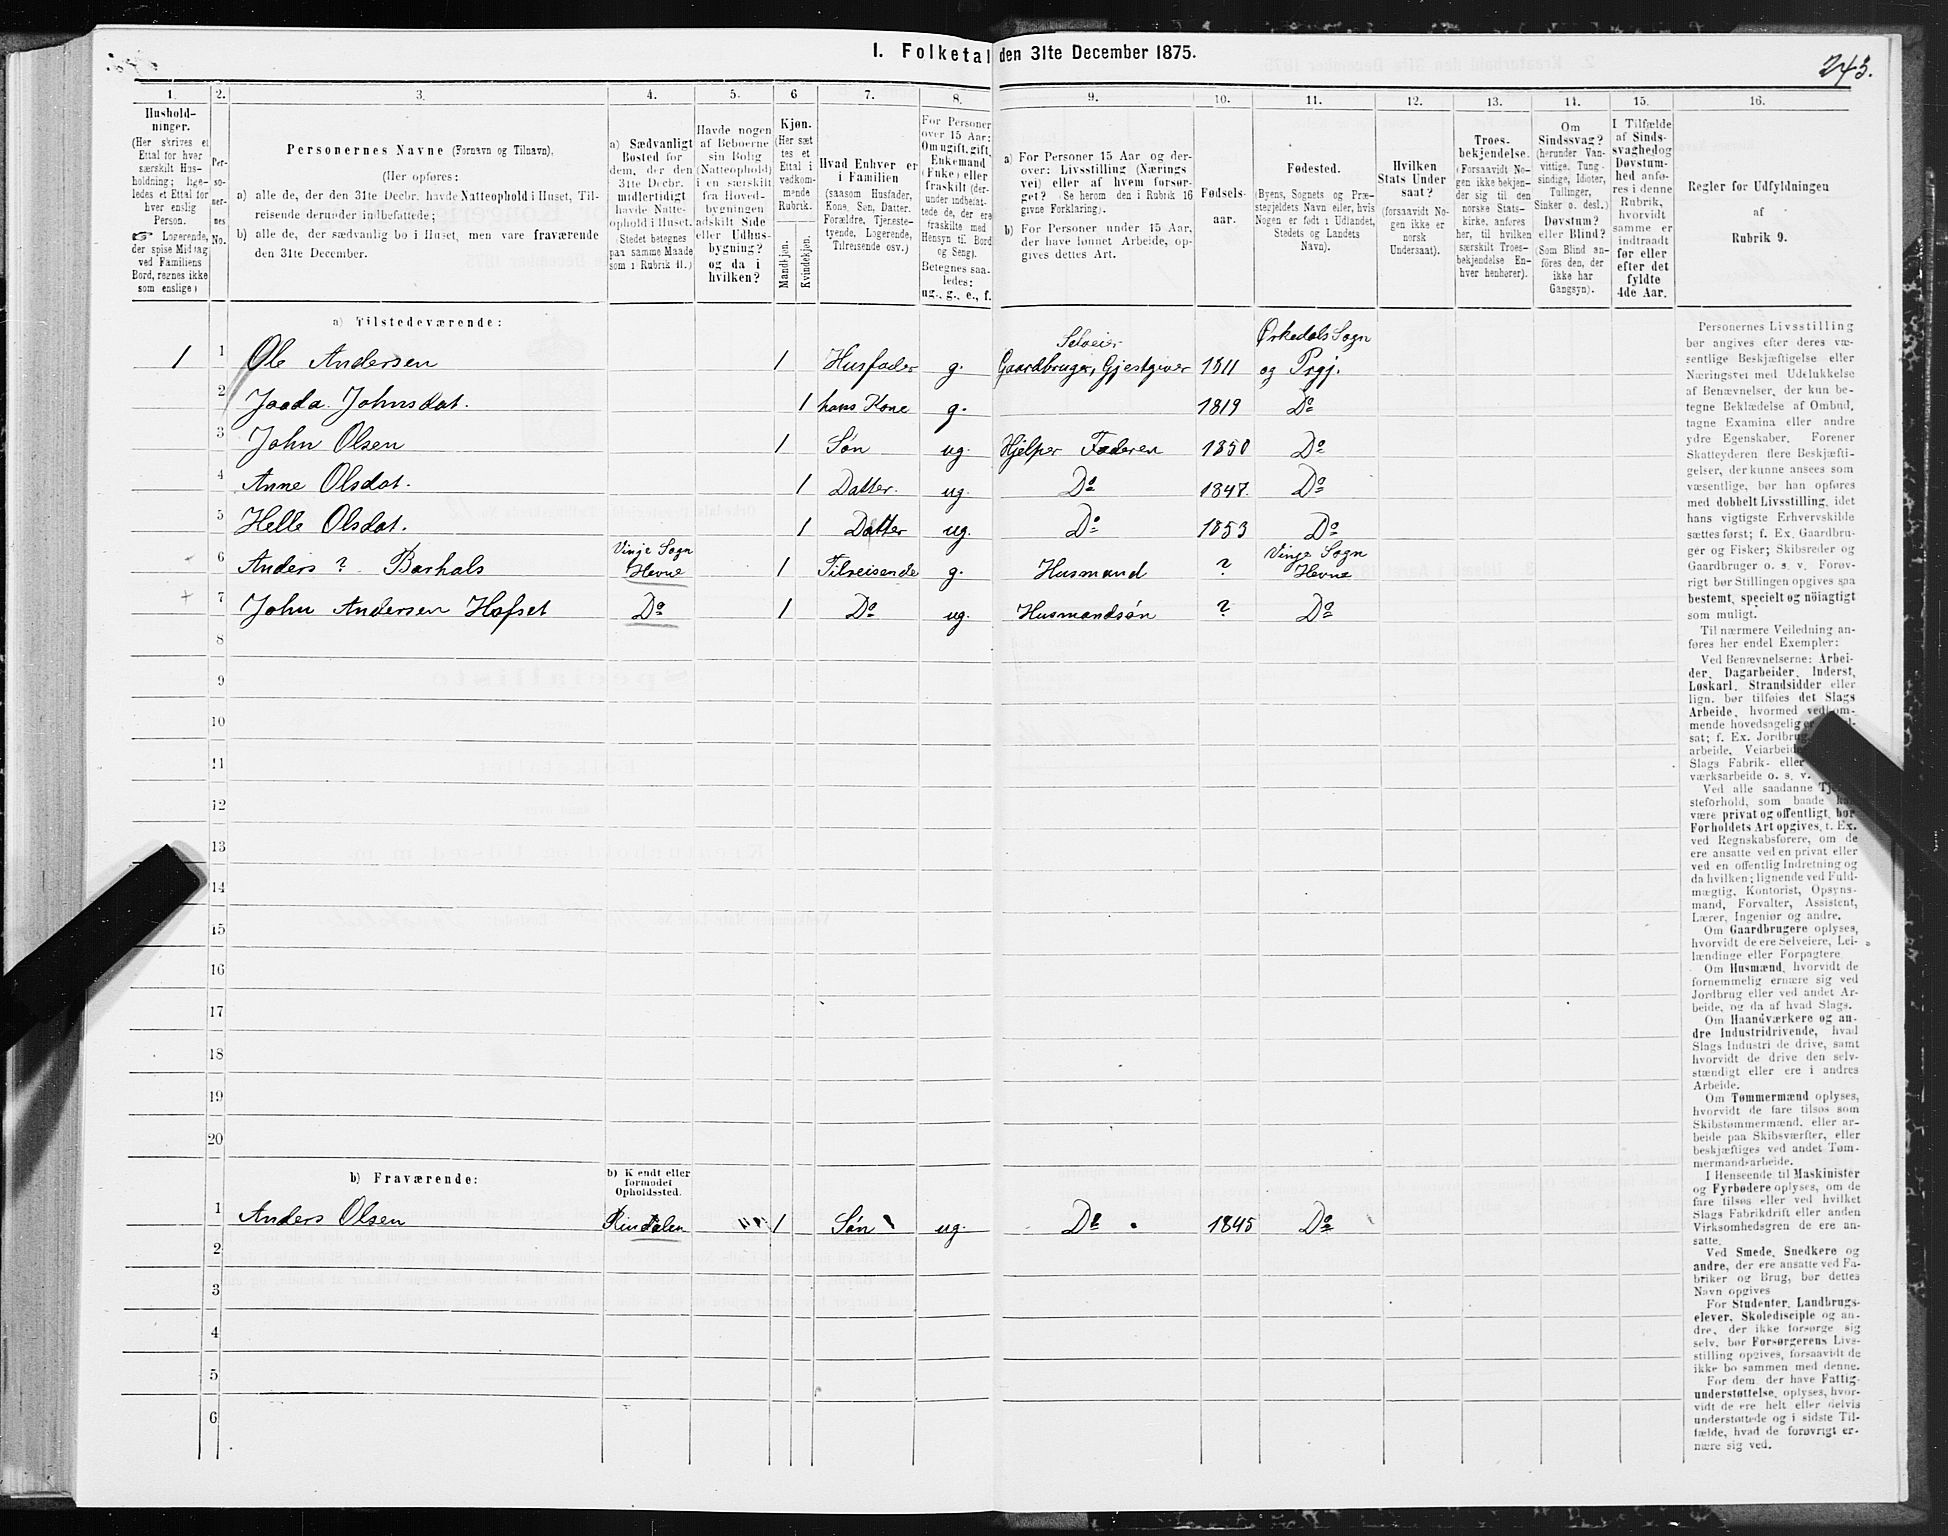 I. Folketal den 31te December 1875.
243.
1. 2. 3. 4. 5. 6 7. 8. 9. 10. 11. 12. 13. 14. 15. 16.
Hushold-
ninger.
(Her skrives et
Ettal for hver
særskilt Hus-
holdning; lige-
ledes et Ettal for
hver enslig
Person.
☞ Logerende,
der spise Middag
ved Familiens
Bord, regnes ikke
som enslige)
Per-
so-
ner-
nes
No.
Personernes Navne (Fornavn og Tilnavn).
(Her opføres:
a) alle de, der den 31te Decbr. havde Natteophold i Huset, Til-
reisende derunder indbefattede;
b) alle de, der sædvanlig bo i Huset, men vare fraværende
den 31te December.
a) Sædvanligt
Bosted for
dem, der den
31te Decbr.
midlertidigt
havde Natte-
ophold i Huset.
(Stedet betegnes
paa samme Maade
som i Rubrik 11.)
Havde nogen
af Beboerne
sin Bolig
(Natteophold)
i en særskilt
fra Hoved-
bygningen
adskilt Side
eller Udhus-
bygning?
og da i
hvilken?
Kjøn.
(Her sæt
tes et
Ettal i
vedkom-
mende
Rubrik.
Mandkjøn.
Kvindekjøn.
Hvad Enhver er
i Familien
(saasom Husfader,
Kone, Søn, Datter,
Forældre, Tjeneste-
tyende, Logerende,
Tilreisende osv.)
For Personer
over 15 Aar:
Om ugift, gift,
Enkemand
(Enke) eller
fraskilt (der-
under indbefat-
tede de, der ere
fraskilte med
Hensyn til Bord
og Seng).
Betegnes saa-
ledes:
ug., g., e., f.
a) For Personer 15 Aar og der-
over: Livsstilling (Nærings
vei) eller af hvem forsør-
get? (Se herom den i Rubrik 16
givne Forklaring).
b) For Personer under 15 Aar,
der have lønnet Arbeide, op-
gives dettes Art.
Fødsels-
aar.
Fødested.
(Byens, Sognets og Præ-
stegjeldets Navn eller, hvis
Nogen er født i Udlandet,
Stedets og Landets
Navn).
Hvilken
Stats Under
saat?
(forsaavidt No-
gen ikke er
norsk
Undersaat).
Troes-
bekjendelse.
(Forsaavidt No-
gen ikke bekjen-
der sig til den
norske Stats-
kirke, anføres
her, til hvilken
særskilt Troes-
bekjendelse En-
hver henhører).
Om
Sindssvag?
(herunder Van-
vittige, Tung-
sindige, Idioter,
Tullinger,
Sinker o. desl.)
Døvstum?
eller Blind?
(Som Blind an-
føres den, der
ikke har
Gangsyn).
I Tilfælde
af Sinds-
svaghed og
Døvstum-
hed anfø-
res i denne
Rubrik,
hvorvidt
samme er
indtraadt
før eller
efter det
fyldte
4de Aar.
Regler for Udfyldningen
af
Rubrik 9.
a) Tilstedeværende:
1 1 Ole Andersen 1 Husfader g. Selveier Gaardbruger, Gjestgiver 1811 Ørkedals Sogn og Prgj.
2 Johnsdat. 1 hans Kone g. 1819 Do
3 John Olsen 1 Søn ug. Hjelper Faderen 1850 Do
4 Anne Olsdat. 1 Datter. ug. Do 1847. Do
5 Helle Olsdat. 1 Datter ug. Do 1853 Do
6 Anders ? Barhals Vinje Sogn Hevne 1 Tilreisende g. Husmand ? Vinje Sogn Hevne
+ 7 John Andersen Hofset Do 1 Do ug. Husmandsøn ? Do
8
9
10
11
12
13
14
15
16
17
18
19
20
b) Fraværende:
b) Kjendt eller
formodet
Opholdssted.
1 Anders Olsen Rindalen 1 Søn ug. Do 1845 Do
2
3
4
5
6
Personernes Livsstilling
bør angives efter deres væ-
sentlige Beskjæftigelse eller
Næringsvei med Udelukkelse
af Benævnelser, der kun be-
tegne Beklædelse af Ombud,
tagne Examina eller andre
ydre Egenskaber. Forener
Skatteyderen flere Beskjæfti-
gelser, der kunne ansees som
væsentlige, bør han opføres
med dobbelt Livsstilling, idet
hans vigtigste Erhvervskilde
sættes først; f. Ex. Gaardbru-
ger og Fisker; Skibsreder og
Gaardbruger o. s. v. Forøv-
rigt bør Stillingen opgives saa
bestemt, specielt og nøiagtigt
som muligt.
Til nærmere Veiledning an-
føres her endel Exempler:
Ved Benævnelserne: Arbei-
der, Dagarbeider, Inderst,
Løskarl, Strandsidder eller
lign. bør tilføies det Slags
Arbeide, hvormed vedkom-
mende hovedsagelig er
sat; f. Ex. Jordbrug
arbeide, Veiarbeide
Slags Fabrik- eller
værksarbeide o. s. v.
Ved alle saadanne
steforhold, som baade
være privat og offentligt, bør
Forholdets Art opgives, t. Ex.
ved Regnskabsførere, om de
ere ansatte ved en privat eller
ved en offentlig Indretning og
da hvilken; lignende ved Fuld-
mægtig, Kontorist, Opsyns-
mand, Forvalter, Assistent,
Lærer, Ingeniør og andre.
Om Gaardbrugere oplyses,
hvorvidt de ere Selveiere, Lei-
lændinge eller Forpagtere.
Om Husmænd, hvorvidt de
fornemmelig ernære sig ved
Jordbrug eller ved andet Ar-
beide, og da af hvad Slags.
Om Haandværkere og an-
dre Industridrivende, hvad
Slags Industri de drive, samt
hvorvidt de drive den selv-
stændigt eller ere i andres
Arbeide.
Om Tømmermænd oplyses,
hvorvidt de fare tilsøs som
Skibstømmermænd, eller ar-
beide paa Skibsværfter, eller
beskjæftiges ved andet Tøm-
mermandsarbeide.
I Henseende til Maskinister
og Fyrbødere oplyses, om de
fare tilsøs eller ved hvilket
Slags Fabrikdrift eller anden
Virksomhedsgren de ere an-
satte.
Ved Smede, Snedkere og
andre, der ere ansatte ved Fa-
briker og Brug, bør dettes
Navn opgives
For Studenter, Landbrugs-
elever, Skoledisciple og an-
dre, der ikke forsørge sig
selv, bør Forsørgerens Livs-
stilling opgives, forsaavidt de
ikke bo sammen med denne.
For dem, der have Fattig-
understøttelse, oplyses, hvor-
vidt de ere helt eller delvis
understøttede og i sidste Til-
fælde, hvad de forøvrigt er-
nære sig ved.